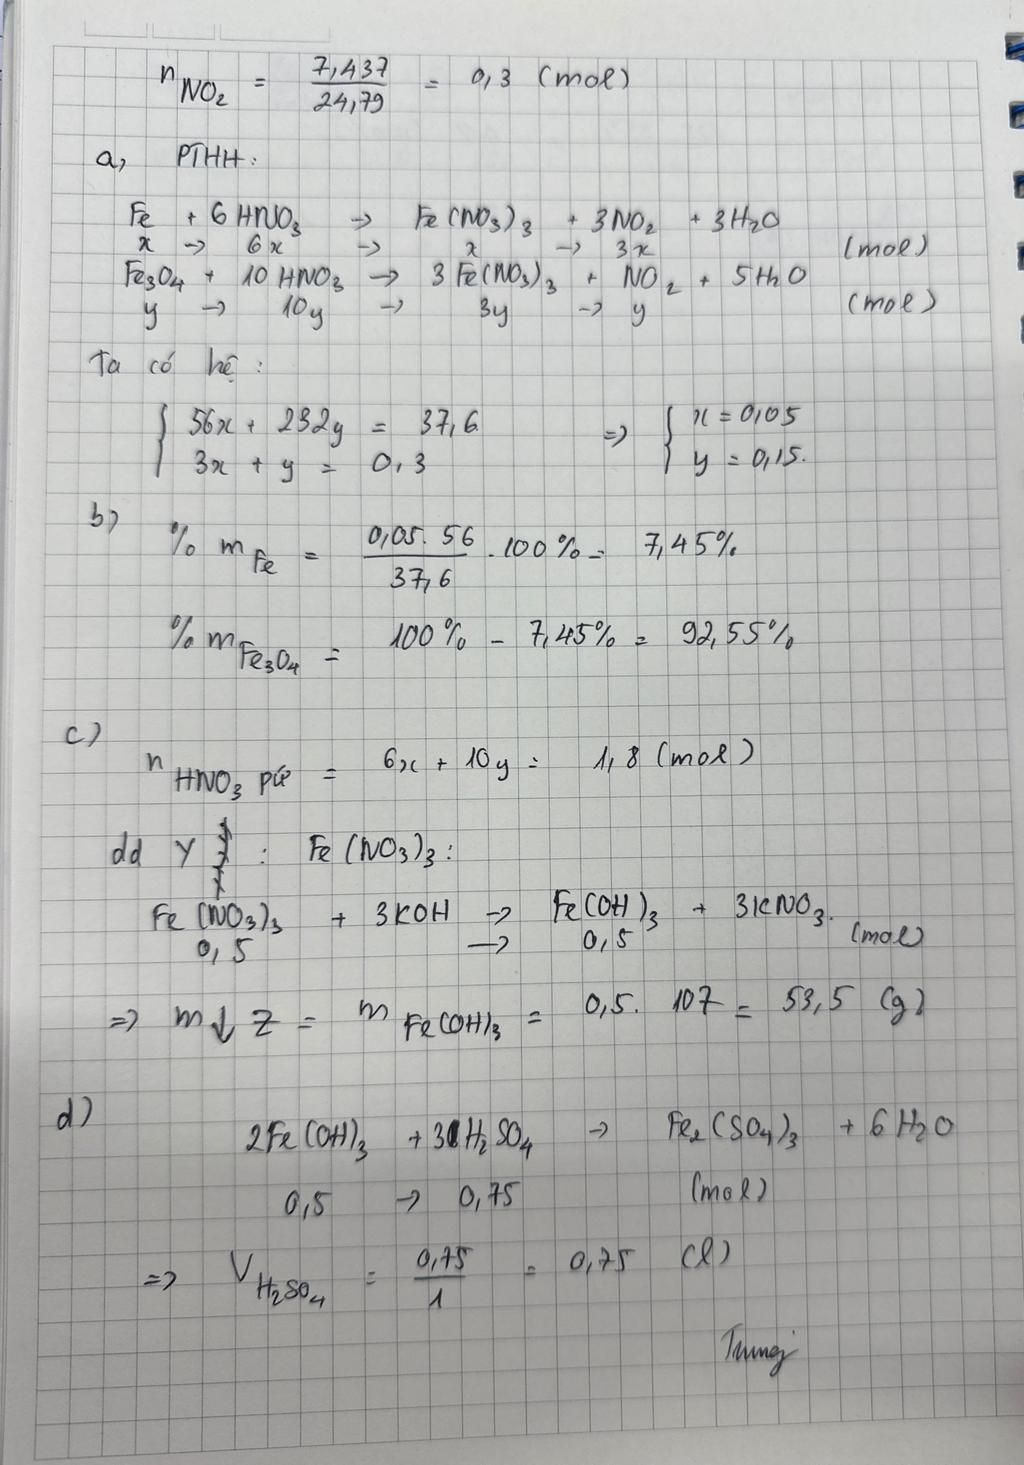 n NO₂ = 7,437 / 24,79 = 0,3 (mol)
a, PTHH:
Fe + 6 HNO₃ → Fe(NO₃)₃ + 3NO₂ + 3H₂O
x → 6x → x → 3x (mol)
Fe₃O₄ + 10 HNO₃ → 3 Fe(NO₃)₃ + NO₂ + 5H₂O
y → 10y → 3y → y (mol)
Ta có hệ:
{ 56x + 232y = 37,6 => { x = 0,05
{ 3x + y = 0,3 { y = 0,15.
b) % m Fe = 0,05. 56 / 37,6 . 100% = 7,45%
% m Fe₃O₄ = 100% - 7,45% = 92,55%
c)
n HNO₃ pứ = 6x + 10y = 1,8 (mol)
dd Y : Fe(NO₃)₃:
Fe(NO₃)₃ + 3KOH → Fe(OH)₃ + 3KNO₃.
0,5 → 0,5 (mol)
=> m↓ Z = m Fe(OH)₃ = 0,5. 107 = 53,5 (g)
d)
2Fe(OH)₃ + 3H₂SO₄ → Fe₂(SO₄)₃ + 6H₂O
0,5 → 0,75 (mol)
=> V H₂SO₄ = 0,75 / 1 = 0,75 (l)